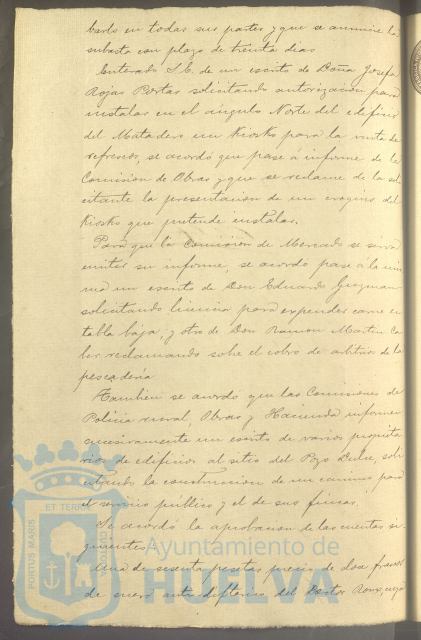 barlo en todas sus partes y que se anuncie la
subasta con plazo de treinta dias
Enterado S.E. de un escrito de Doña Josefa
Rojas Portas solicitando autorizacion para
instalar en el ángulo Norte del edificio
del Matadero un Kiosko para la venta de
refrescos, se acordó que pase á informe de la
Comision de Obras y que se reclame de la soli
citante la presentacion de un croquis del
Kiosko que pretende instalar.
Para que la Comision de Mercado se sirva
emitir su informe, se acordó pase á la mis
ma un escrito de Don Eduardo Guzman
solicitando licencia para expender carne en
tabla baja, y otro de Don Ramon Martin
reclamando sobre el cobro de arbitrios de la
pescadería
Tambien se acordó que las Comisiones de
Policia rural, Obras y Hacienda informen
sucesivamente un escrito de varios propieta
rios de edificios al sitio del Pozo Dulce, soli
citando la construccion de un camino para
el servicio público y el de sus fincas.
Se acordó la aprobacion de las cuentas si
guientes
Una de sesenta pesetas precio de dos frascos
de suero anti diftérico del Doctor Roux, cuyo
PORTUS MARIS
ET TERRÆ
CUSTODIA
Ayuntamiento de
HUELVA